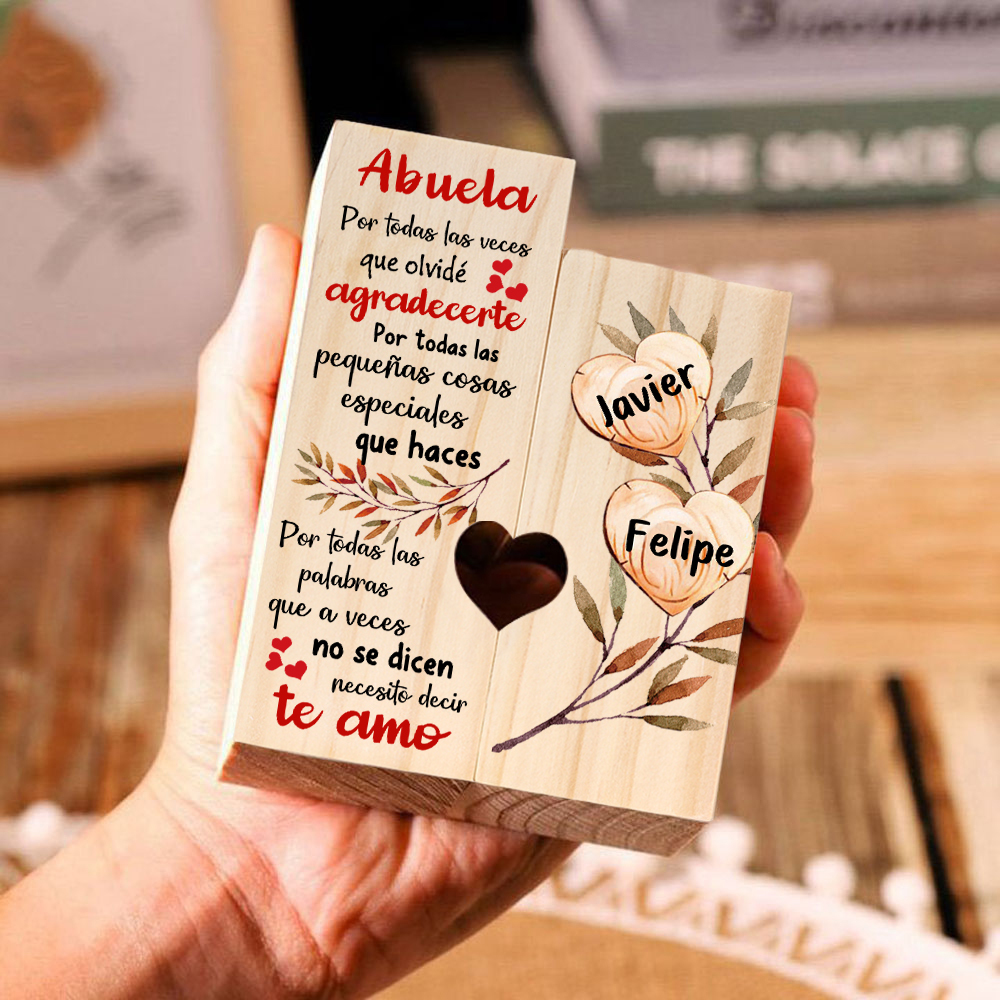 Abuela
Por todas las veces
que olvidé
agradecerte
Por todas las
pequeñas cosas
especiales
que haces
Por todas las
palabras
que a veces
no se dicen
necesito decir
te amo
Javier
Felipe
THE SOLACE